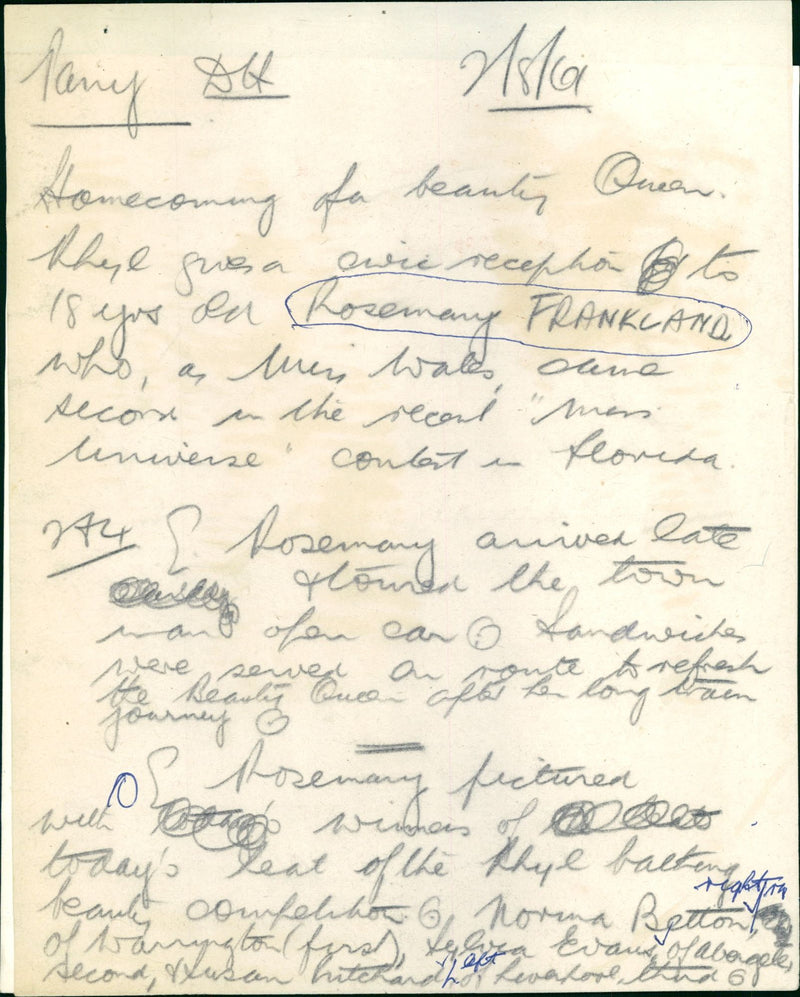 Parry DH 2/8/61
Homecoming of a beauty Queen.
Rhyl gives a civic reception to
18 yrs old Rosemary FRANKLAND
who, as Miss Wales, came
second in the recent "Miss
Universe" contest in Florida.
2+4 Rosemary arrived late
& toured the town
in an open car. Sandwiches
were served on route to refresh
the Beauty Queen after her long train
journey.
Rosemary pictured
with winners of
today's heat of the Rhyl bathing
beauty competition. Norma Betton, right
of Warrington (first), Sylvia Evans, of Abergele,
second, & Susan Pritchard left of Liverpool, third